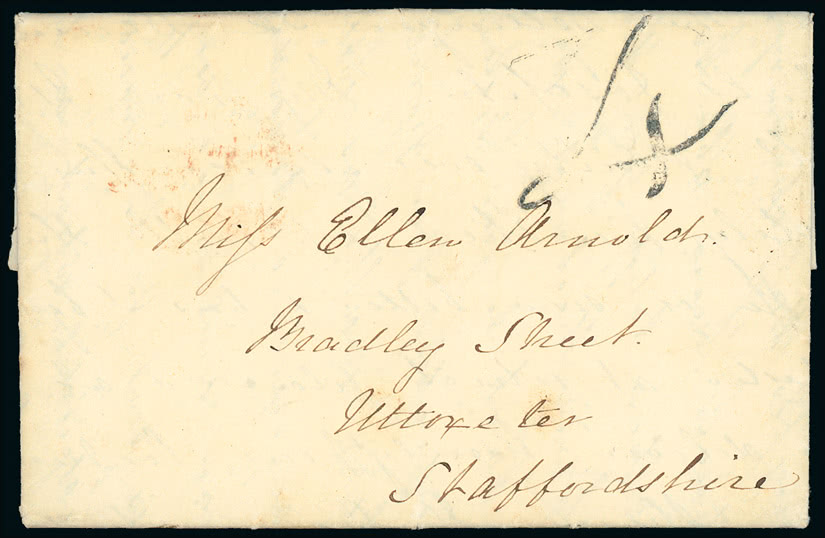 4
Miss Ellen Arnold.
Bradley Street.
Uttoxeter
Staffordshire